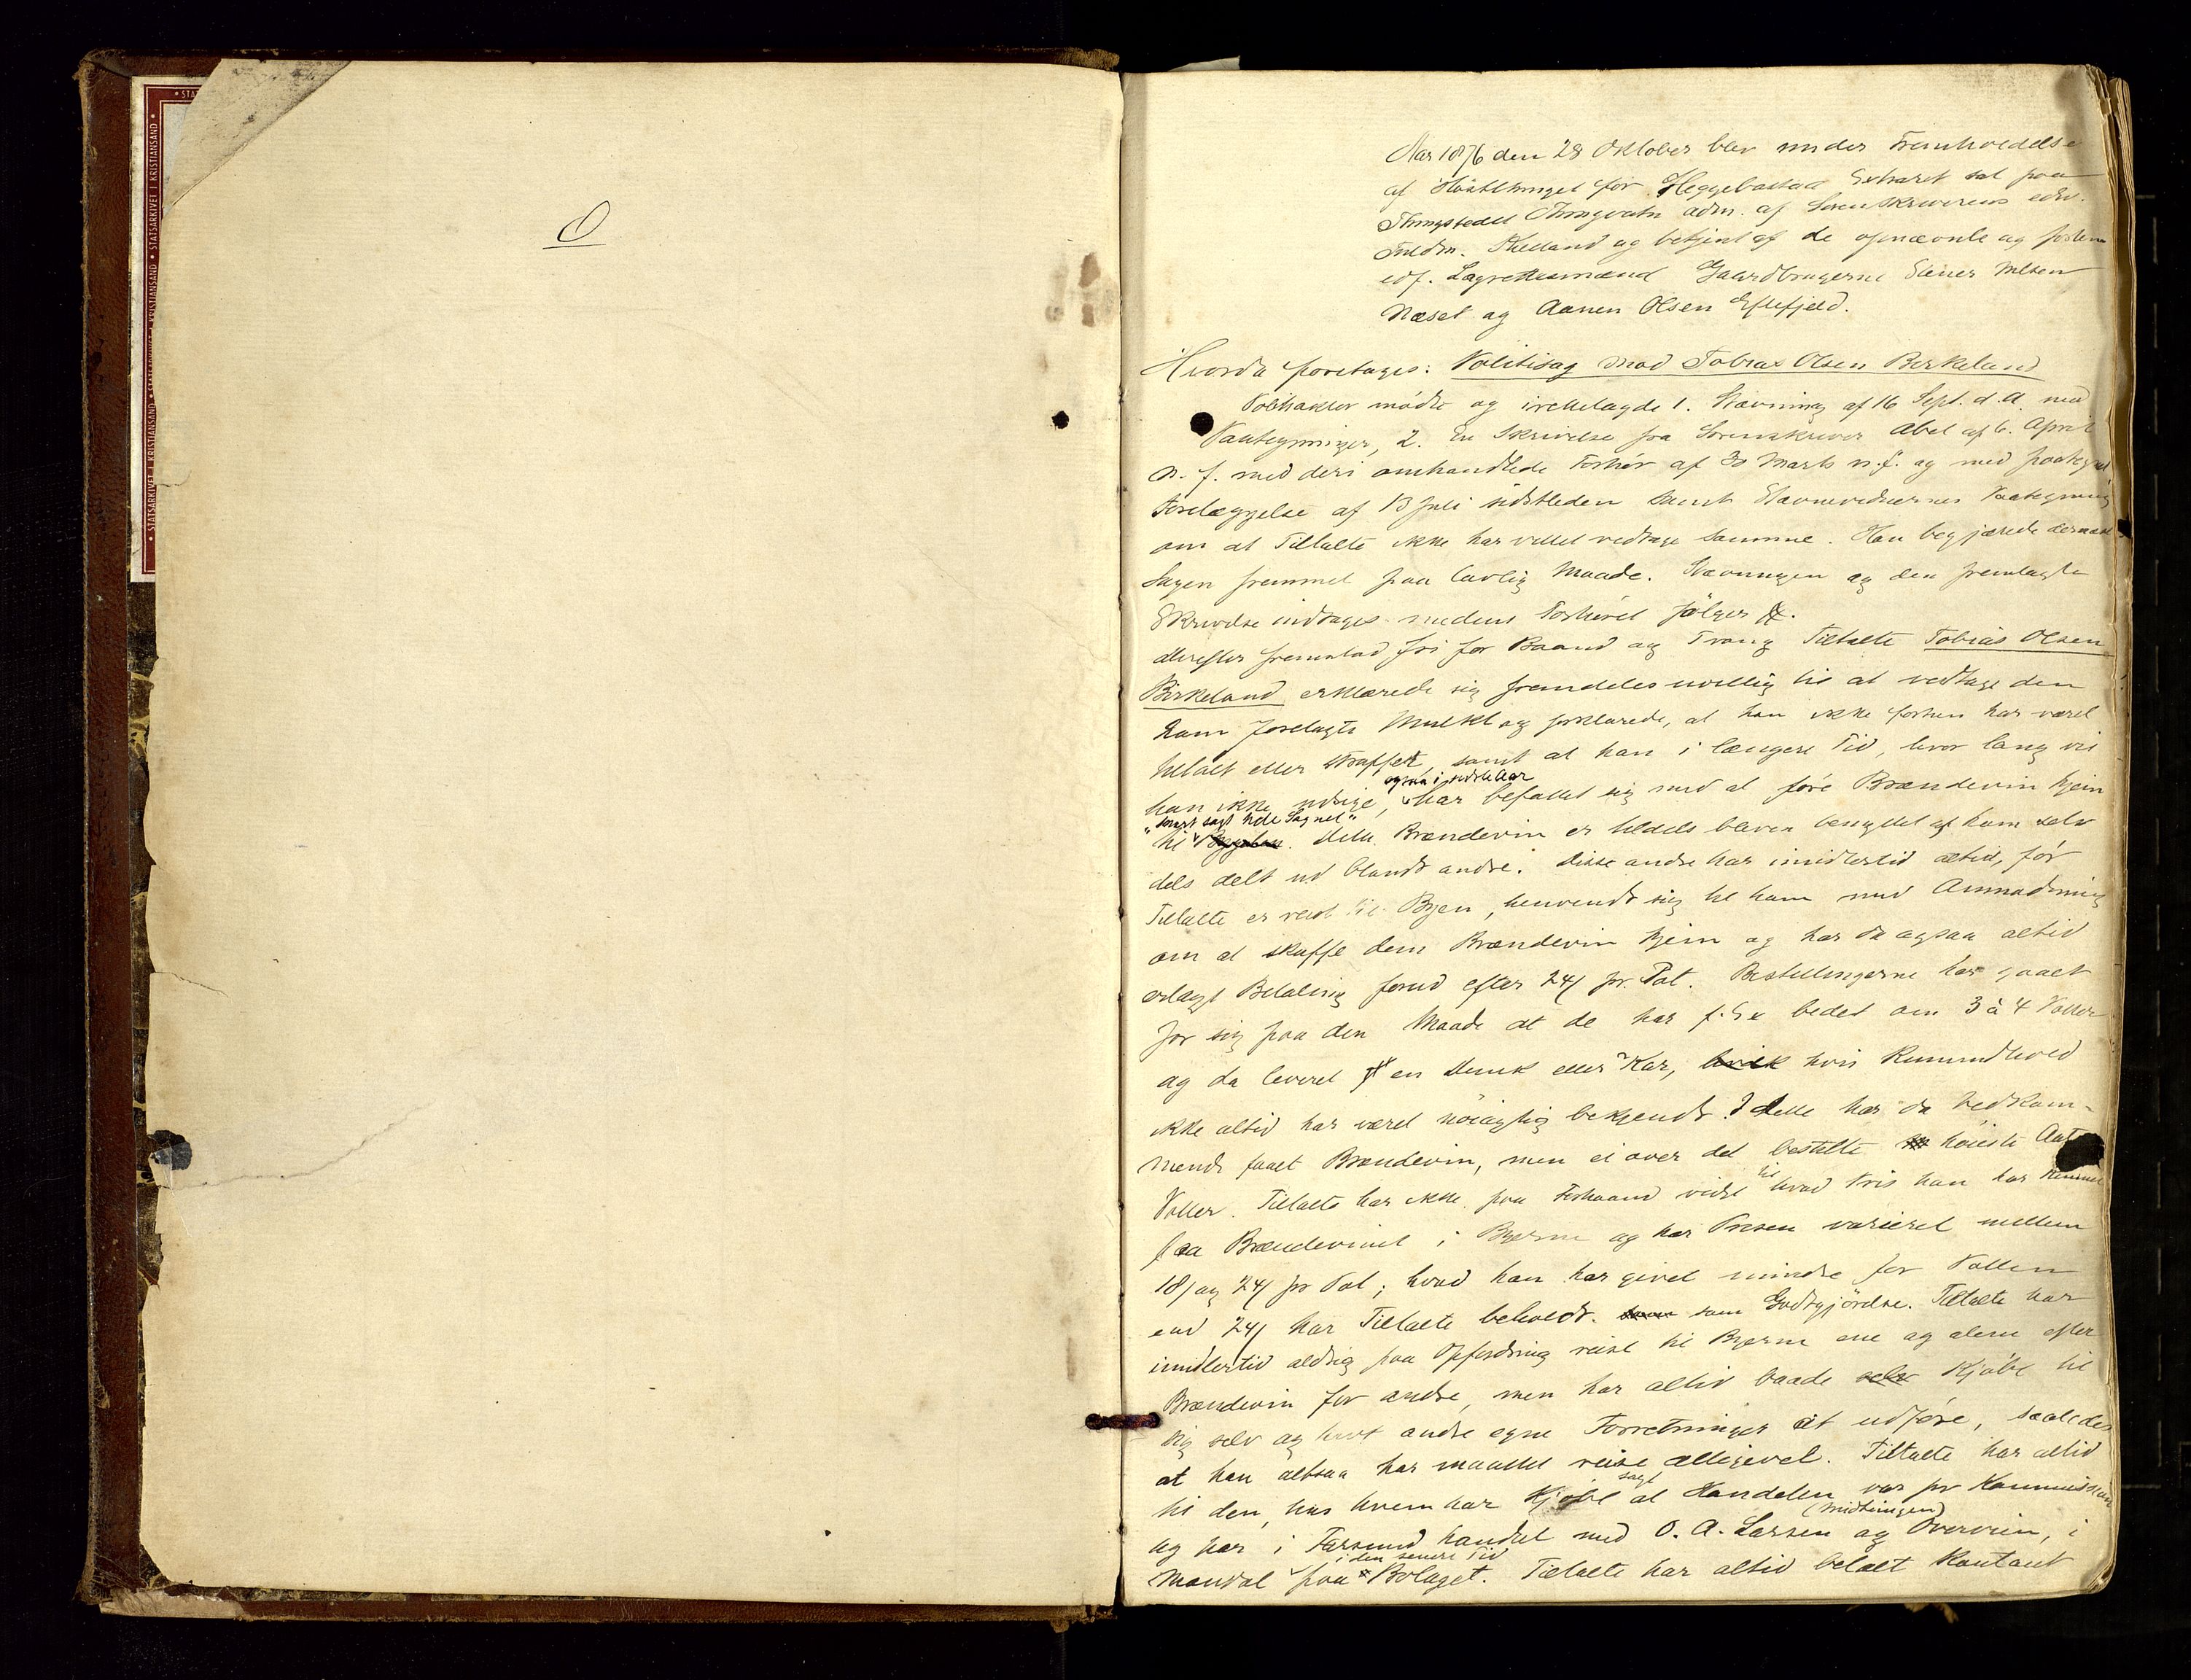 O
• STATSARKIVET I KRISTIANSAND • STATSARKIVET I KRISTIANSAND •
Aar 1876 den 28 Oktober blev under Fremholdelse
af Høstthinget for Heggebostad Extraret sat paa
Thingstedet Thingvatn adm. af Sorenskriverens edsv.
Fuldm. Kielland og betjent af de opnævnte og
edf. Lagrettesmænd Gaardbrugerne Nilsen
Næset og Aanen Olsen Eftefjeld.
Hvorda foretages: Politisag mod Tobias Olsen Birkeland
Politiaktor mødte og irettelagde 1. Stævning af 16 Sept. d.A. med
Paategninger, 2. En Skrivelse fra Sorenskriver Abel af 6. April
n. f. med deri omhandlede Forhør af 30 Marts n.f. og med paategnet
Forelæggelse af 13 Juli sidstleden samt Stævnevidnernes Paategning
om at Tiltalte ikke har villet vedtage samme. Han begjærede dernæst
Sagen fremmet paa lovlig Maade. Stævningen og den fremlagte
Skrivelse indtages medens Forhøret følger
Derefter fremstod fri for Baand og Tvang Tiltalte Tobias Olsen
Birkeland erklærede sig fremdeles uvillig til at vedtage den
ham forelagte Mulkt og forklarede, at han ikke forhen har været
tiltalt eller straffet, samt at han i længere Tid, hvor lang vil
han ikke udsige, også i sidste Aar har befattet sig med at føre Brændevin hjem
til "snart sagt hele Sognet" Bygden. Dette Brændevin er tildels bleven benyttet af ham selv
dels delt ud blandt andre. Disse andre har imidlertid altid, før
Tiltalte er reist til Byen, henvendt sig til ham med Anmodning
om at skaffe dem Brændevin hjem og har da ogsaa altid
erlagt Betaling forud efter 24/ pr. Pot. Bestillingerne har gaaet
for sig paa den Maade at de har f. Ex bedet om 3 à 4 Potter
og da leveret en Dunk eller Kar, hvis Rummdhold
ikke altid har været nøiagtig bekjendt. I dette har da Vedkom-
mende faaet Brændevin, men ei over det bestilte høieste Antal
Potter. Tiltalte har ikke paa Forhaand vidst til hvad Pris han har kunnet
faa Brændevinet i Byerne og har Prisen varieret mellem
18/ og 24/ pr Pot; hvad han har givet mindre for Potten
end 24/ har Tiltalte beholdt som Godtgjørelse. Tiltalte har
imidlertid aldrig paa Opfordring reist til Byerne ene og alene efter
Brændevin for andre, men har altid baade selv Kjøbt til
sig selv og havt andre egne Forretninger at udføre, saaledes
at han altsaa har maattet reise alligevel. Tiltalte har altid
til den, hos hvem har Kjøbt sagt at Handelen var pr Kommission
og har i Farsund handlet med O. A. Larsen og Overvein (Midthingen), i
Mandal paa i den senere Tid Bolaget. Tiltalte har altid betalt Kontant